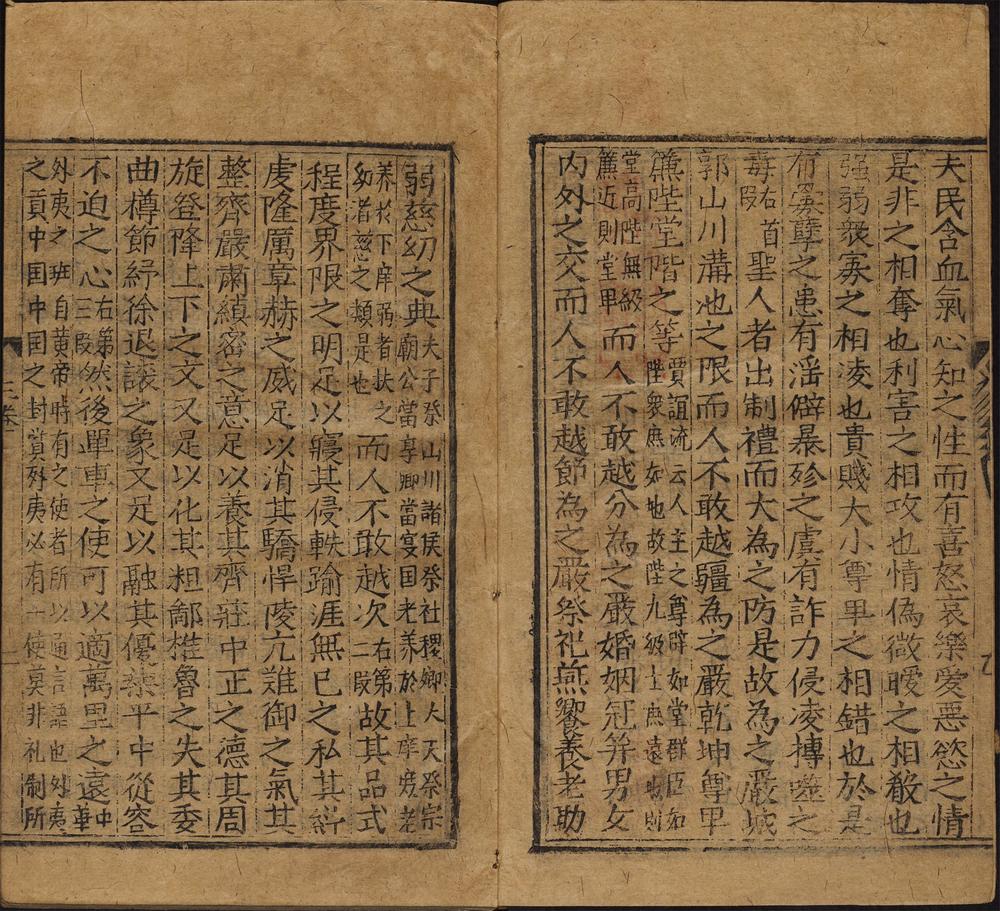 夫民含血氣心知之性而有喜怒哀樂愛惡慾之情
是非之相奪也利害之相攻也情偽微曖之相殽也
强弱衆寡之相凌也貴賤大小尊卑之相錯也於是
有冦孽之患有滛僻暴殄之虐有詐力侵凌摶噬之
毒右首叚聖人者出制禮而大為之防是故為之嚴城
郭山川溝池之限而人不敢越疆為之嚴乾坤尊卑
簾陛堂階之等賈誼流云人主之尊辟如堂群臣如陛衆庶如地故陛九級上庶遠地則
堂高陛無級簾近則堂卑而人不敢越分為之嚴婚姻冠笄男女
内外之交而人不敢越節為之嚴祭祀燕饗養老助
弱慈幼之典夫子祭山川諸侯祭社稷卿大夫祭宗廟公當享卿當宴国老養於上庠庶老
养於下庠弱者扶之幼者慈之類是也而人不敢越次右第二叚故其品式
程度界限之明足以寢其侵軼踰涯無已之私其綜
䖍隆厲章赫之威足以消其驕悍陵亢難御之氣其
整齊嚴肅縝密之意足以養其齊莊中正之德其周
旋登降上下之文又足以化其粗鄙椎魯之失其委
曲樽節紓徐退讓之象文足以融其優柔平中從容
不迫之心右第三叚然後單車之使可以適萬里之遠中華
外夷之班自黄帝時有之使者所以通言語也外夷
之貢中国中国之封賞外夷必有一使莫非礼制所
三卷